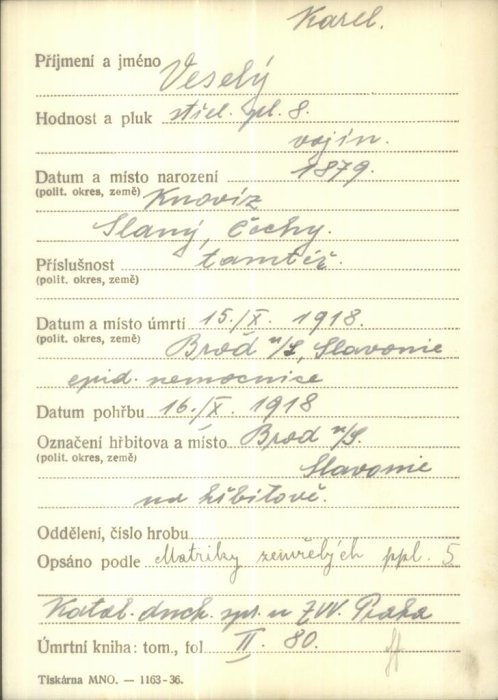 Karel.
Příjmení a jméno Veselý
Hodnost a pluk střel. pl. 8.
vojín.
Datum a místo narození 1879.
(polit. okres, země) Knovíz
Slaný, Čechy.
Příslušnost tamtéž.
(polit. okres, země)
Datum a místo úmrtí 15./X. 1918.
(polit. okres, země) Brod n/S, Slavonie
epid. nemocnice
Datum pohřbu 16./X. 1918
Označení hřbitova a místo Brod n/S.
(polit. okres, země) Slavonie
na hřbitově.
Oddělení, číslo hrobu
Opsáno podle Matriky zemřelých ppl. 5
Katol. duch. spr. u ZVV. Praha
Úmrtní kniha: tom., fol II. 80.
Tiskárna MNO. — 1163-36.